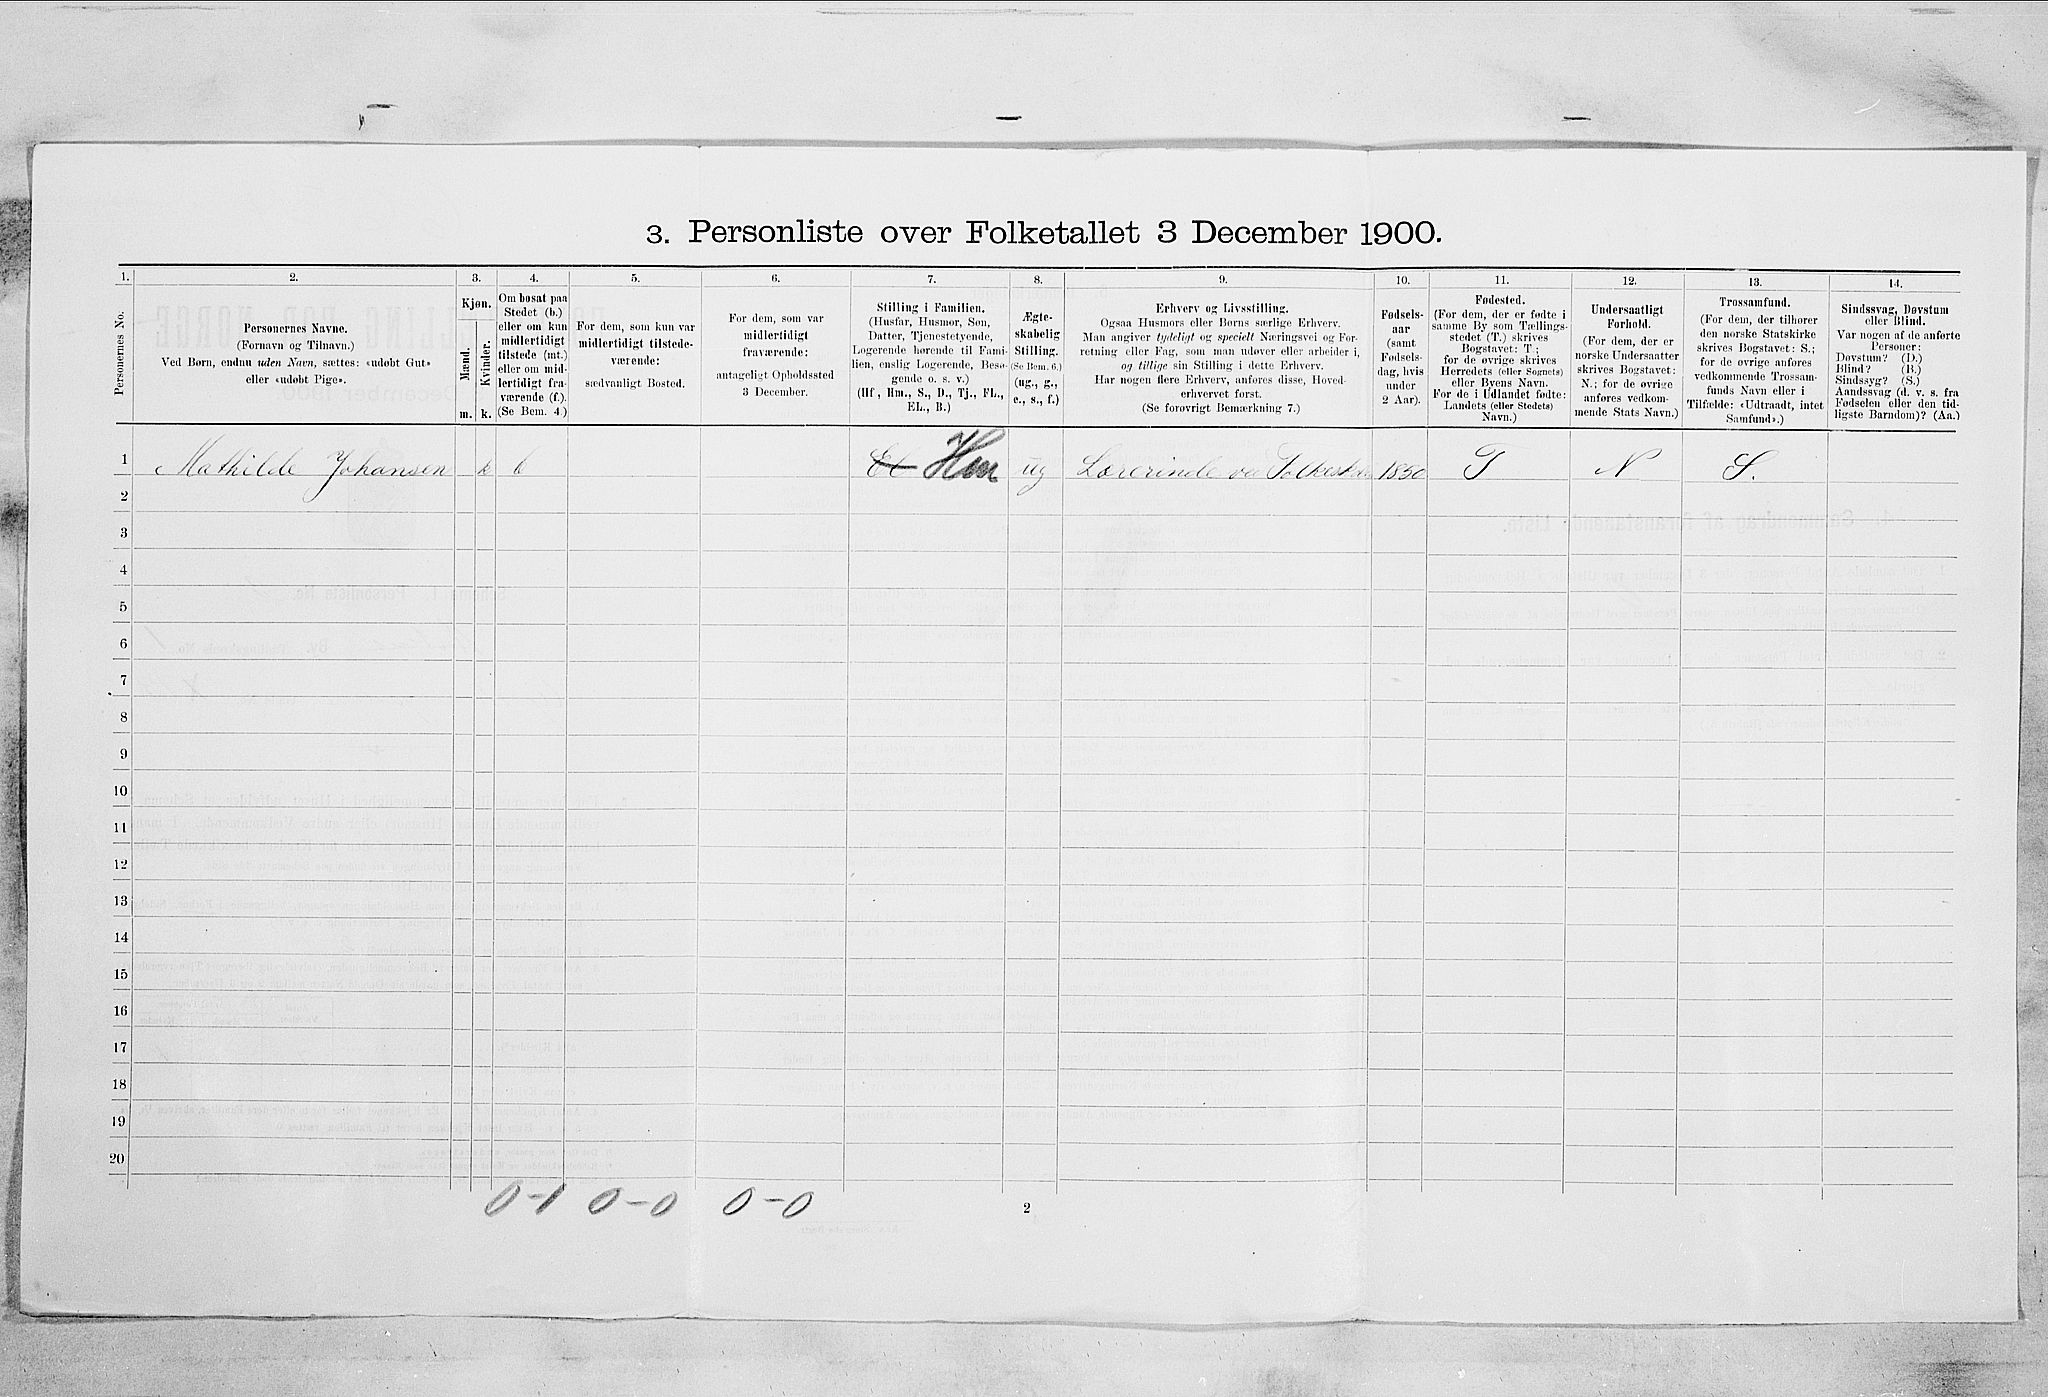 3. Personliste over Folketallet 3 December 1900.
1. 2. 3. 4. 5. 6. 7. 8. 9. 10. 11. 12. 13. 14.
Personernes No.
Personernes Navne.
(Fornavn og Tilnavn.)
Ved Børn, endnu uden Navn, sættes: «udøbt Gut»
eller «udøbt Pige».
Kjøn.
Mænd.
Kvinder.
m. k.
Om bosat paa
Stedet (b.)
eller om kun
midlertidigt
tilstede (mt.)
eller om mid-
lertidigt fra-
værende (f.)
(Se Bem. 4.)
For dem, som kun var
midlertidigt tilstede-
værende:
sædvanligt Bosted.
For dem, som var
midlertidigt
fraværende:
antageligt Opholdssted
3 December.
Stilling i Familien.
(Husfar, Husmor, Søn,
Datter, Tjenestetyende,
Logerende hørende til Fami-
lien, enslig Logerende, Besø-
gende o. s. v.)
(Hf., Hm., S., D., Tj., FL.,
EL., B.)
Ægte-
skabelig
Stilling.
(Se Bem. 6.)
(ug., g.,
e., s., f.)
Erhverv og Livsstilling.
Ogsaa Husmors eller Børns særlige Erhverv.
Man angiver tydeligt og specielt Næringsvei og For-
retning eller Fag, som man udøver eller arbeider i,
og tillige sin Stilling i dette Erhverv.
Har nogen flere Erhverv, anføres disse, Hoved-
erhvervet først.
(Se forøvrigt Bemærkning 7.)
Fødsels-
aar
(samt
Fødsels-
dag, hvis
under
2 Aar).
Fødested.
(For dem, der er fødte i
samme By som Tællings-
stedet (T.) skrives
Bogstavet: T.;
for de øvrige skrives
Herredets (eller Sognets)
eller Byens Navn.
For de i Udlandet fødte:
Landets (eller Stedets)
Navn.)
Undersaatligt
Forhold.
(For dem, der er
norske Undersaatter
skrives Bogstavet:
N.; for de øvrige
anføres vedkom-
mende Stats Navn.)
Trossamfund.
(For dem, der tilhører
den norske Statskirke
skrives Bogstavet: S.;
for de øvrige anføres
vedkommende Trossam-
funds Navn eller i
Tilfælde: «Udtraadt, intet
Samfund».)
Sindssvag, Døvstum
eller Blind.
Var nogen af de anførte
Personer:
Døvstum? (D.)
Blind? (B.)
Sindssyg? (S.)
Aandssvag (d. v. s. fra
Fødselen eller den tid-
ligste Barndom)? (Aa.)
1 Mathilde Johansen k b El Hm ug Lærerinde ve Folkeskol 1850 T N S.
2
3
4
5
6
7
8
9
10
11
12
13
14
15
16
17
18
19
20
0-1 0-0 0-0
2